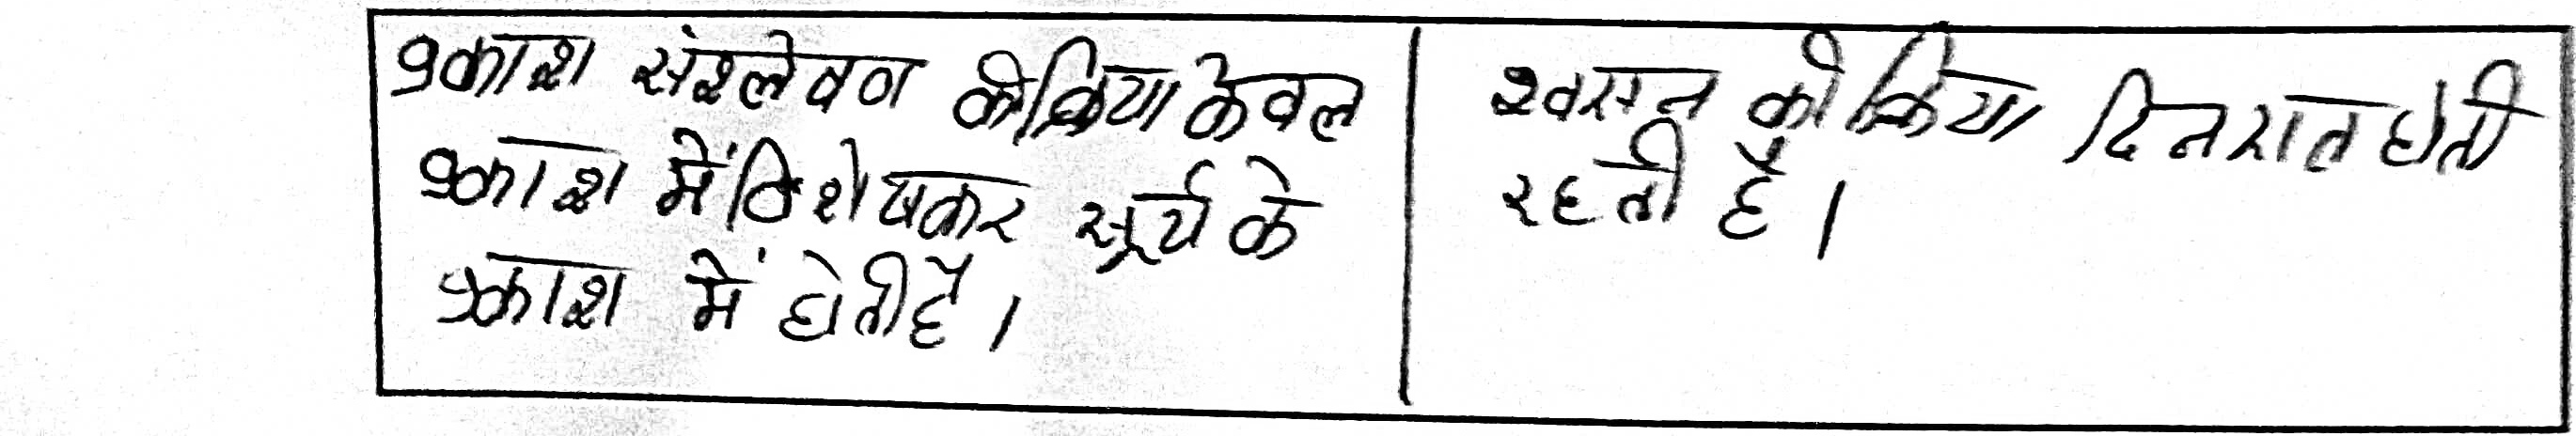 प्रकाश संश्लेषण की क्रिया केवल
प्रकाश में विशेषकर सूर्य के
प्रकाश में होती है।
श्वसन की क्रिया दिन रात होती
रहती है।